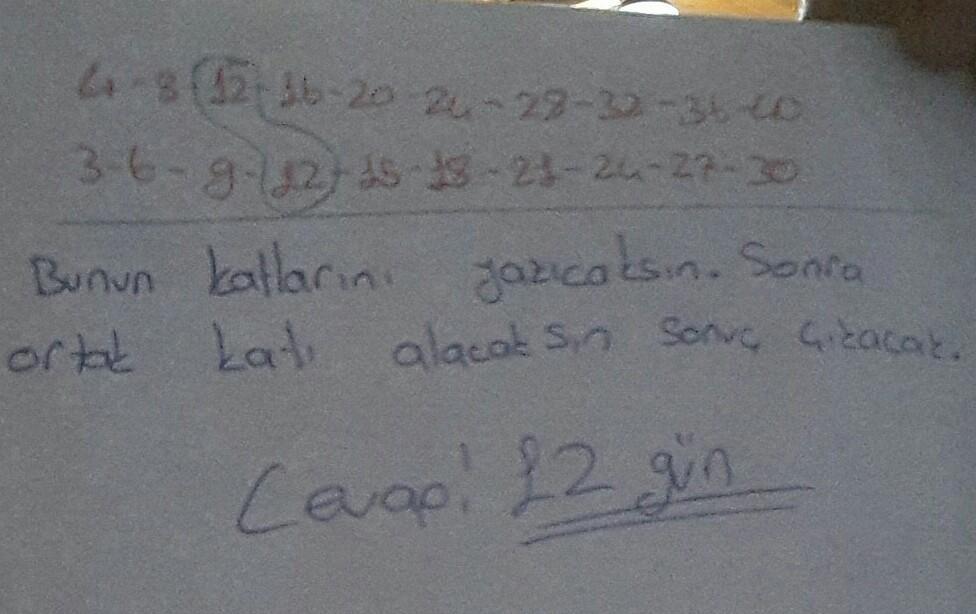 4-8-12-16-20-24-28-32-36-40
3-6-9-12-15-18-21-24-27-30
Bunun katlarını yazıcaksın. Sonra
ortak katı alacaksın sonuç çıkacak.
Cevap: 12 gün